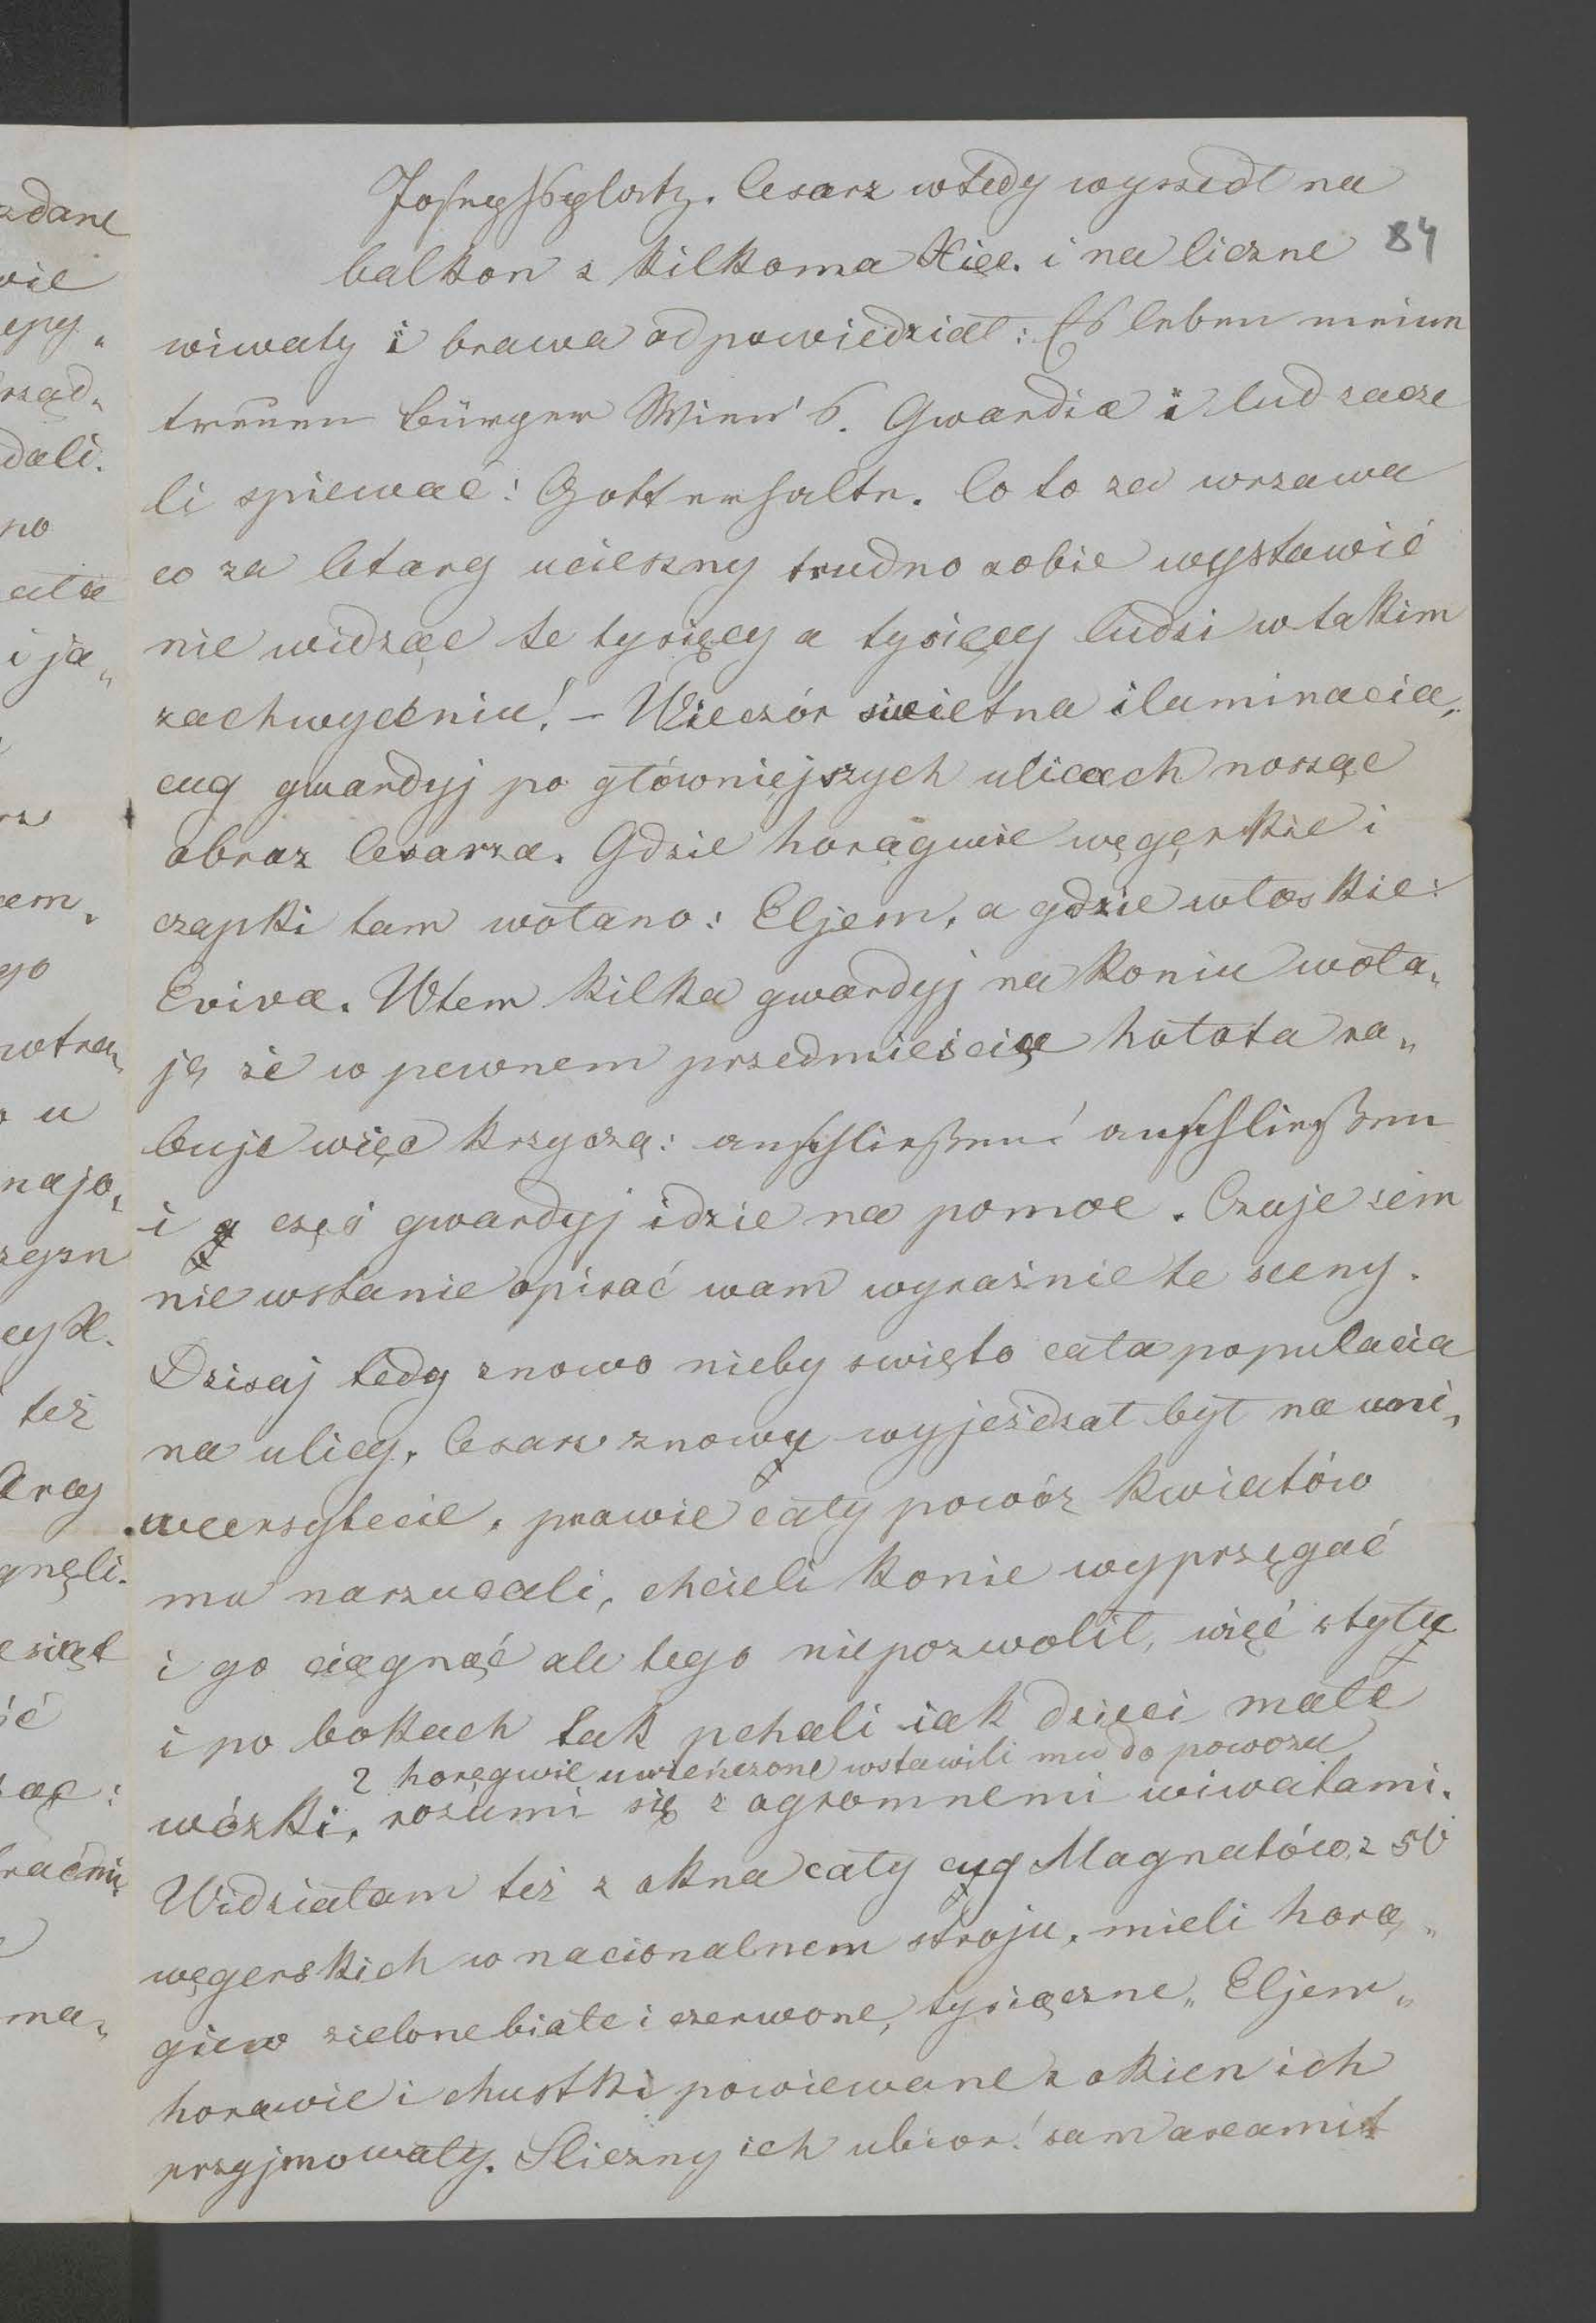 Josephsplatz. Cesarz wtedy wyszedł na
84
balkon z kilkoma Xięc. i na liczne
wiwaty i brawa odpowiedział: Es leben meine
treuen Bürger Wien's. Gwardia i lud zacze
li spiewać: Gott erhalte. Co to za wrzawa
co za letarg ucieszny trudno sobie wystawić
nie widząc te tysięcy a tysięcy ludzi w takim
zachwyceniu! – Wieczór swietna iluminacia,
cug gwardyj po główniejszych ulicach nosząc
obraz Cesarza. Gdzie horągwie węgerskie i
czapki tam wołano: Eljem, a gdzie włoskie:
Eviva. Wtem kilka gwardyj na koniu woła„
ją że w pewnem przedmieściu hołota ra„
buje więc krzyczą: anschließen! anschließen
i częś gwardyj idzie na pomoc. Czuje żem
nie wstanie opisać wam wyraźnie te sceny.
Dzisaj tedy znowo nieby swięto cała populacia
na ulicy. Cesarz znowu wyjeżdzał był na uni„
wersytecie, prawie cały powóz kwiatów
mu narzucali, chcieli konie wyprzęgać
i go ciągnąć ale tego niepozwolił, więć s tyłu
i po bokach tak pchali iak dzieci małe
2 horągwie uwieńczone wstawili mu do powozu
wózki, rozumi się z ogromnemi wiwatami.
Widziałam też z okna cały cug Magnatów z 50
węgerskich w nacionalnem stroju, mieli horą„
giew zielone białe i czerwone, tysiączne „Eljem„
horawie i chustki powiewane z okien ich
przyjmowały. Sliczny ich ubior! sam axamit
zdane
wie
dali.
no
i ja„
go
u
najo„
też
gnęli.
ma„